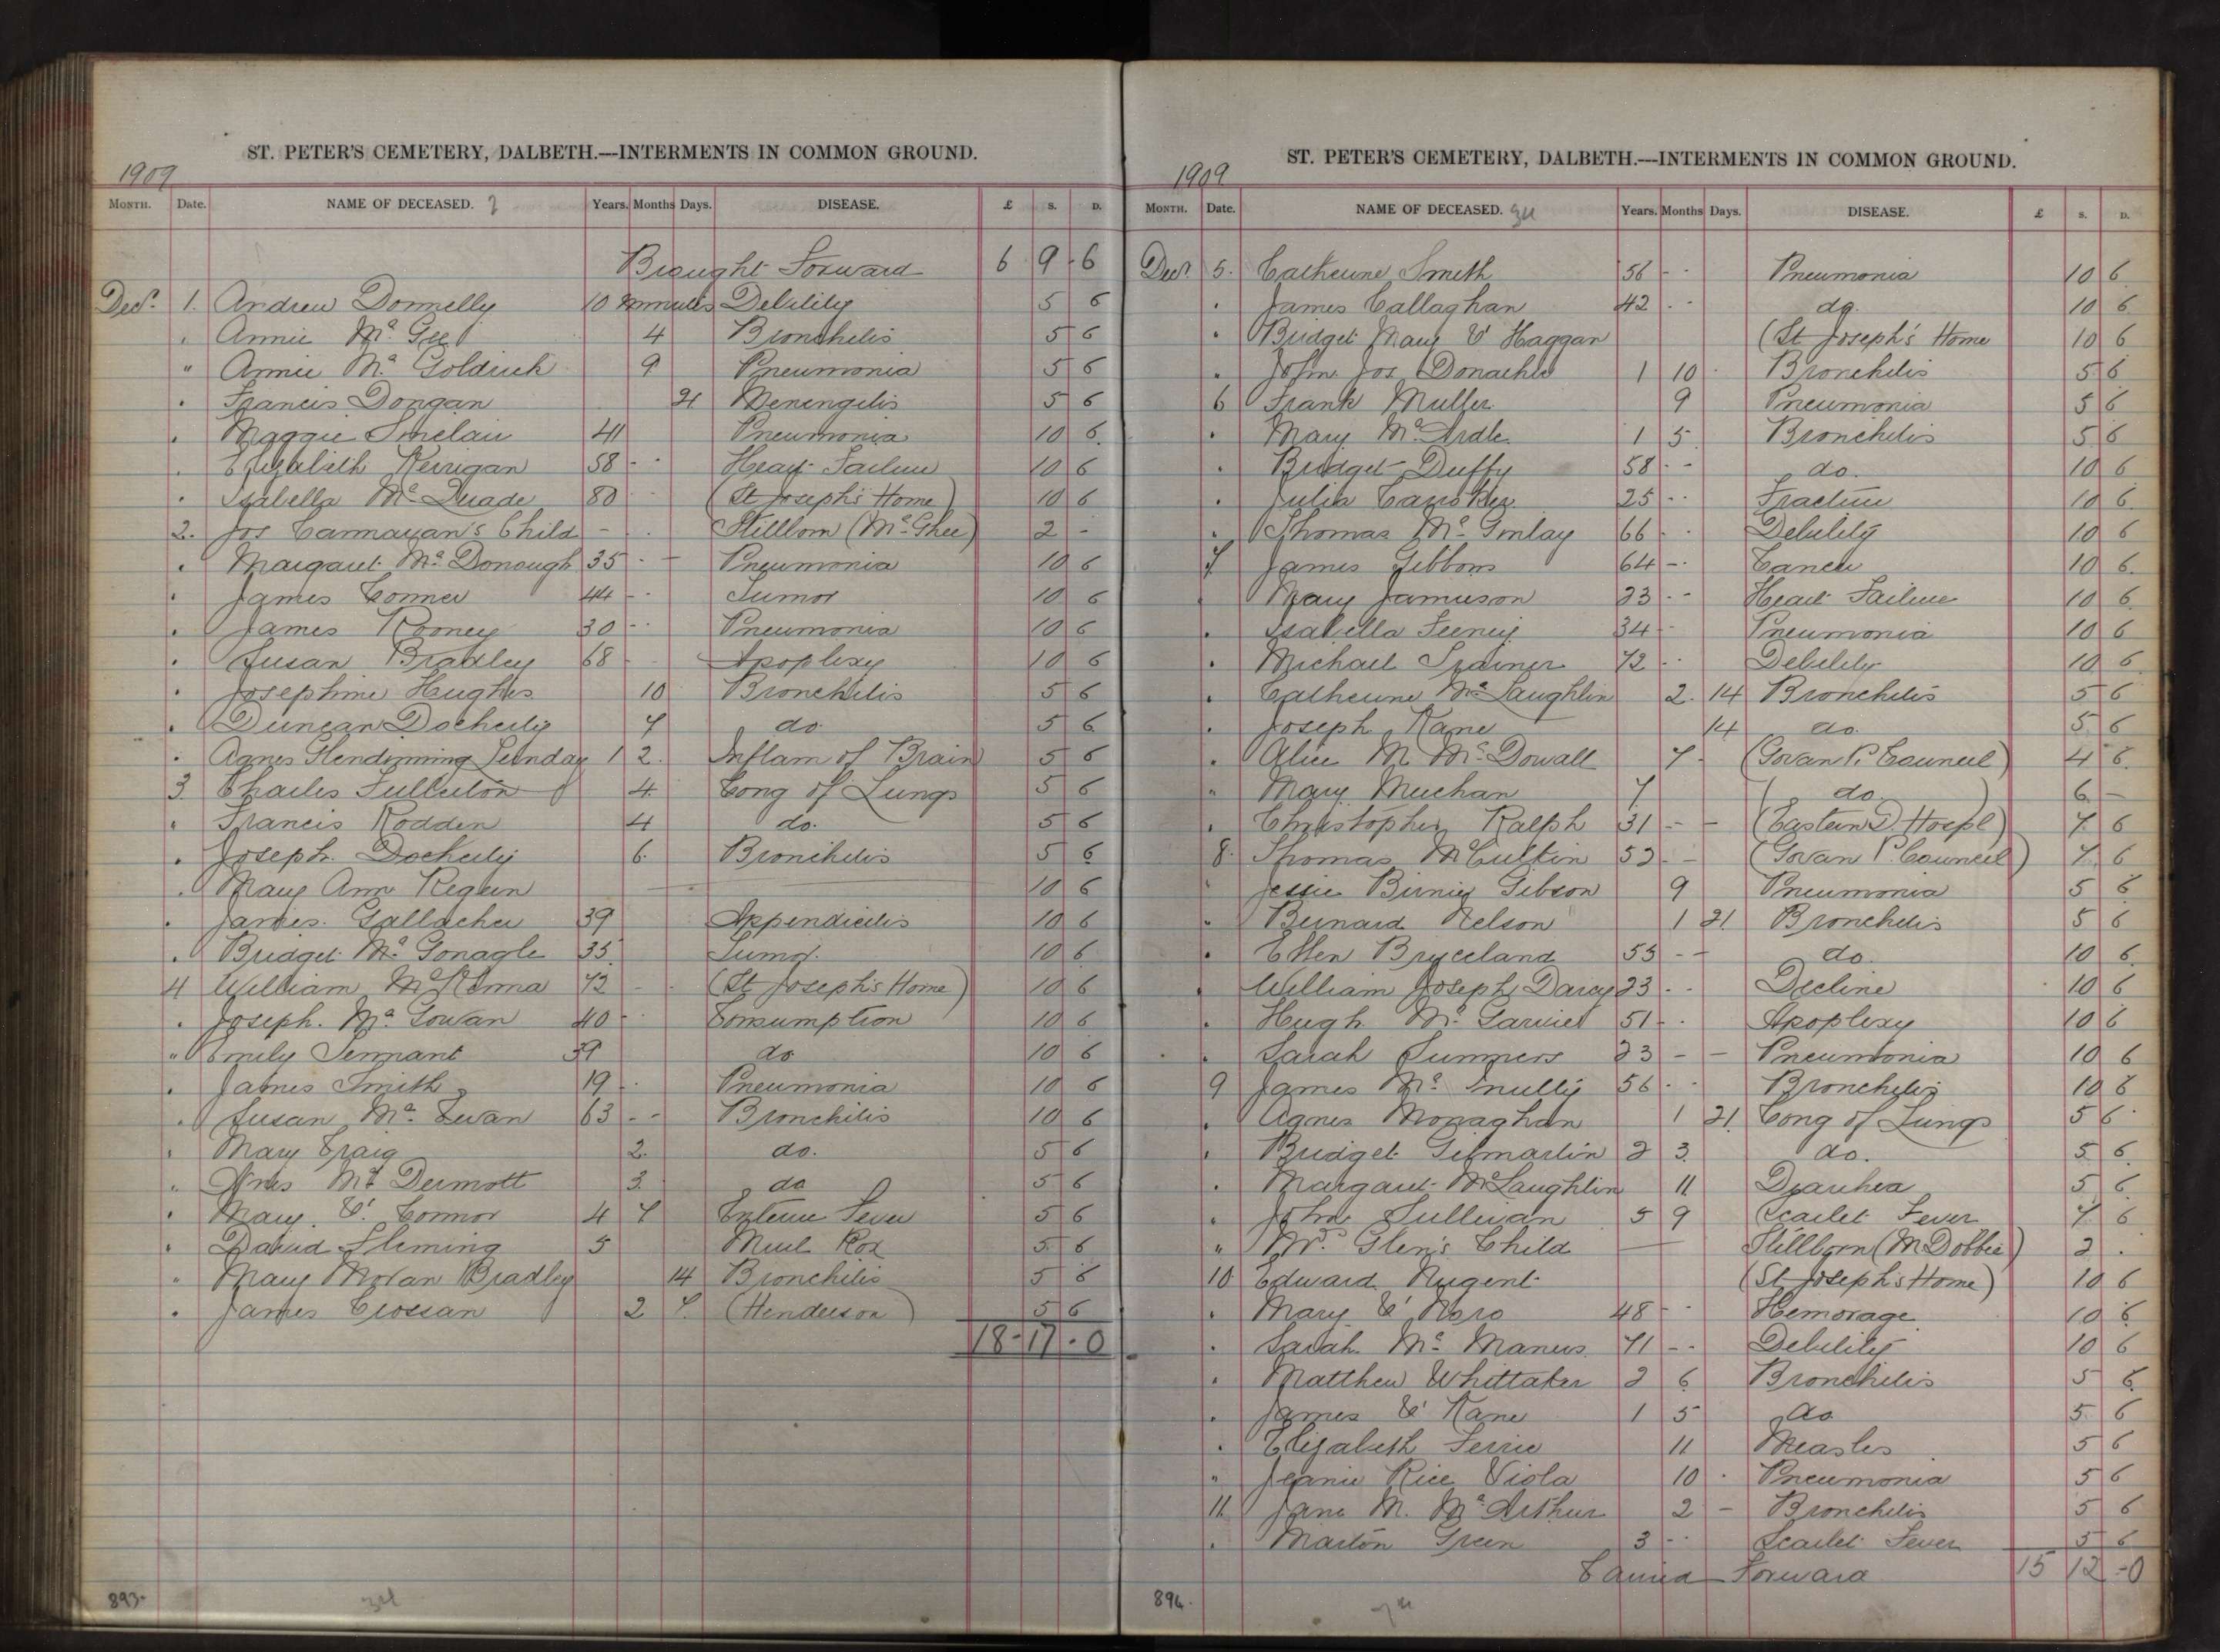 ST. PETER'S CEMETERY, DALBETH.—INTERMENTS IN COMMON GROUND.
1909
MONTH. Date. NAME OF DECEASED. Years. Months Days. DISEASE. £ S. D.
Brought Forward 6 9 - 6
Decr. 1. Andrew Donnelly 10 minutes Debility 5 6
. Annie Mc Gee 4 Bronchitis 5 6
" Annie Mc Goldrick 9 Pneumonia 5 6
. Francis Dongan 21 Menengitis 5 6
. Maggie Sinclair 41 Pneumonia 10 6
. Elizabeth Kerrigan 58 - - Heart Failure 10 6
. Isabella Mc Quade 80 - - (St Joseph's Home) 10 6
2. Jos Cannavan's Child - . . Stillborn (Mc Ghee) 2 -
. Margaret Mc Donough 35 - - Pneumonia 10 6
. James Conner 44 - - Tumor 10 6
. James Rooney 30 - - Pneumonia 10 6
. Susan Bradley 68 - Apoplexy 10 6
. Josephine Hughes 10 Bronchitis 5 6
. Duncan Docherty 7 do 5 6
. Agnes Glendinning Lenday 1 2. Inflam of Brain 5 6
3. Charles Fullerton 4 Cong of Lungs 5 6
. Francis Rodden 4 do. 5 6
. Joseph Docherty 6. Bronchitis 5 6
. Mary Ann Regan 10 6
. James Gallacher 39 Appendicitis 10 6
. Bridget Mc Gonagle 35 Tumor 10 6
4 William McKenna 72 - - (St Joseph's Home) 10 6
. Joseph Mc Gowan 40 - Consumption 10 6
" Emily Tennant 39 do 10 6
. James Smith 19 - Pneumonia 10 6
. Susan Mc Ewan 63 - - Bronchitis 10 6
. Mary Craig 2. do. 5 6
. Agnes Mc Dermott 3. do 5 6
. Mary O' Connor 4 7 Enteric Fever 5 6
. David Fleming 5 5 6
" Mary Moran Bradley 14 Bronchitis 5 6
. James Crossan 2 7. (Henderson) 5 6
18 - 17 - 0
893
34
ST. PETER'S CEMETERY, DALBETH.—INTERMENTS IN COMMON GROUND.
1909
MONTH. Date. NAME OF DECEASED. 34 Years. Months Days. DISEASE. £ S. D.
Decr. 5. Catherine Smith 56 - - Pneumonia 10 6
. James Callaghan 42 - - do. 10 6
. Bridget Mary O' Haggan (St Joseph's Home 10 6
. John Jos Donachie 1 10 . Bronchitis 5 6
6 Frank Muller 9 Pneumonia 5 6
. Mary Mc Ardle 1 5 Bronchitis 5 6
. Bridget Duffy 58 - - do. 10 6
. Julia 25 - - Fracture 10 6
. Thomas Mc Ginlay 66 - - Debility 10 6
7. James Gibbons 64 - - Cancer 10 6
Mary Jamieson 23 - - Heart Failure 10 6
. Isabella Feeney 34 - Pneumonia 10 6
. Michael Trainer 72 - - Debility 10 6
. Catherine Mc Laughlin 2. 14 Bronchitis 5 6
. Joseph Kane 14 do. 5 6
. Alice M Mc Dowall 7 - (Govan P. Council) 4 6
" Mary Meechan 7 ( do. ) 6 -
. Christopher Ralph 31 - - (Eastern D. Hospl) 7. 6
8. Thomas McCulkin 52 - - (Govan P. Council) 7. 6
" Jessie Birnie Gibson 9 Pneumonia 5 6
" Bernard Nelson 1 21 Bronchitis 5 6
. Ellen Bryceland 55 - - do. 10 6
. William Joseph Darcy 23 - - Decline 10 6
. Hugh Mc Garvie 51 - - Apoplexy 10 6
. Sarah Summers 23 - - Pneumonia 10 6
9 James Mc Anully 56 - - Bronchitis 10 6
. Agnes Monaghan 1 21 Cong of Lungs 5 6
. Bridget Gilmartin 2 3. do. 5 6
. Margaret McLaughlin 11 Diarrhea 5 6
. John Sullivan 5 9 Scarlet Fever 7 6
" Mrs. Glen's Child — Stillborn (McDobbie) 2 .
10 Edward Nugent (St Joseph's Home) 10 6
. Mary O' Roro 48 - - Hemorage 10 6
. Sarah Mc Manus 71 - - Debility 10 6
. Matthew Whittaker 2 6 Bronchitis 5 6
. James O' Kane 1 5 do 5 6
. Elizabeth Ferrie 11 Measles 5 6
" Jeanie Rice Viola 10 . Pneumonia 5 6
11 Jane M. Mc Arthur 2 - Bronchitis 5 6
. Martin Green 3 - - Scarlet Fever 5 6
Carried Forward 15 12 - 0
894